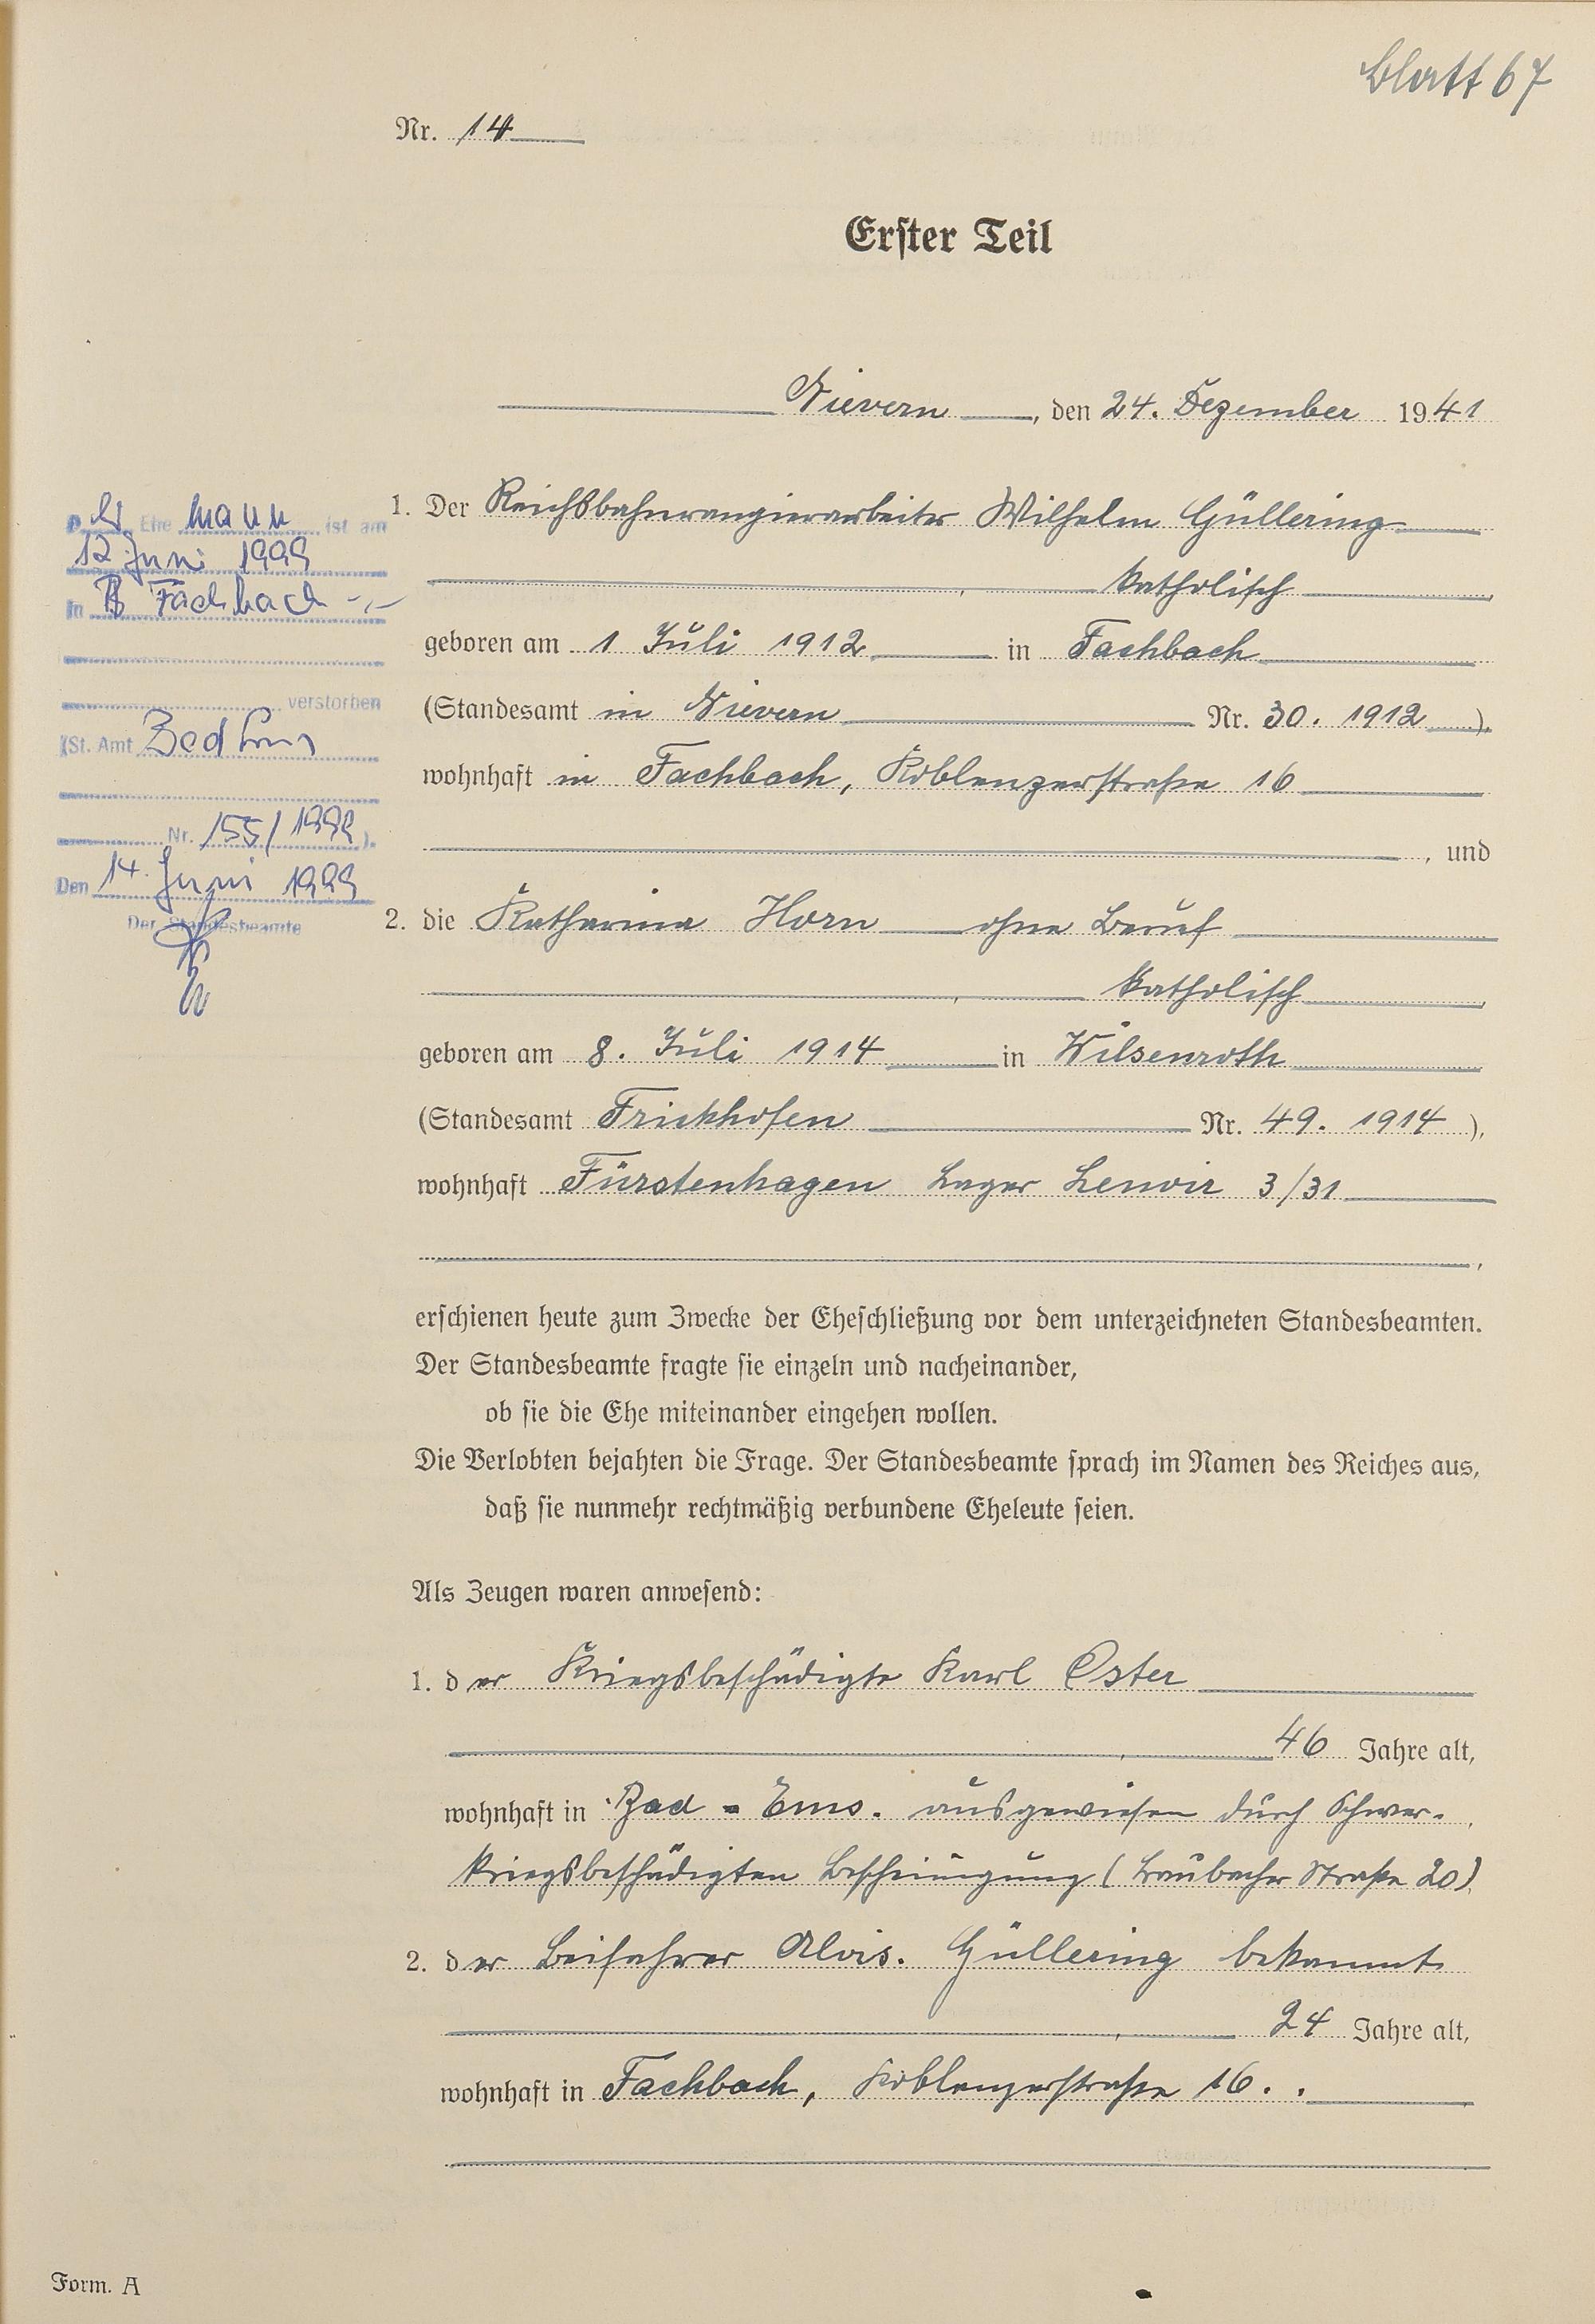 Blatt 67
Nr. 14
Erster Teil
Nievern, den 24. Dezember 1941
1. Der Reichsbahnrangierarbeiter Wilhelm Güllering
katholisch
geboren am 1 Juli 1912 in Fachbach
(Standesamt in Nievern Nr. 30. 1912),
wohnhaft in Fachbach, Koblenzerstraße 16
, und
2. die Katharina Horn ohne Beruf
katholisch
geboren am 8. Juli 1914 in Wilsenroth
(Standesamt Frickhofen Nr. 49. 1914),
wohnhaft Fürstenhagen Lager Lenoir 3/31
erschienen heute zum Zwecke der Eheschließung vor dem unterzeichneten Standesbeamten.
Der Standesbeamte fragte sie einzeln und nacheinander,
ob sie die Ehe miteinander eingehen wollen.
Die Verlobten bejahten die Frage. Der Standesbeamte sprach im Namen des Reiches aus,
daß sie nunmehr rechtmäßig verbundene Eheleute seien.
Als Zeugen waren anwesend:
1. der Kriegsbeschädigte Karl Oster
46 Jahre alt,
wohnhaft in Bad-Ems. ausgewiesen durch Schwer-
kriegsbeschädigten Bescheinigung (Braubacher Straße 20)
2. der Beifahrer Alois. Güllering bekannt
24 Jahre alt,
wohnhaft in Fachbach, Koblenzerstraße 16.
Der Ehemann ist am
12 Juni 1999
in Fachbach -,-
verstorben
(St. Amt Bad Ems
Nr. 155/1999).
Den 14. Juni 1999
Der Standesbeamte
Form. A